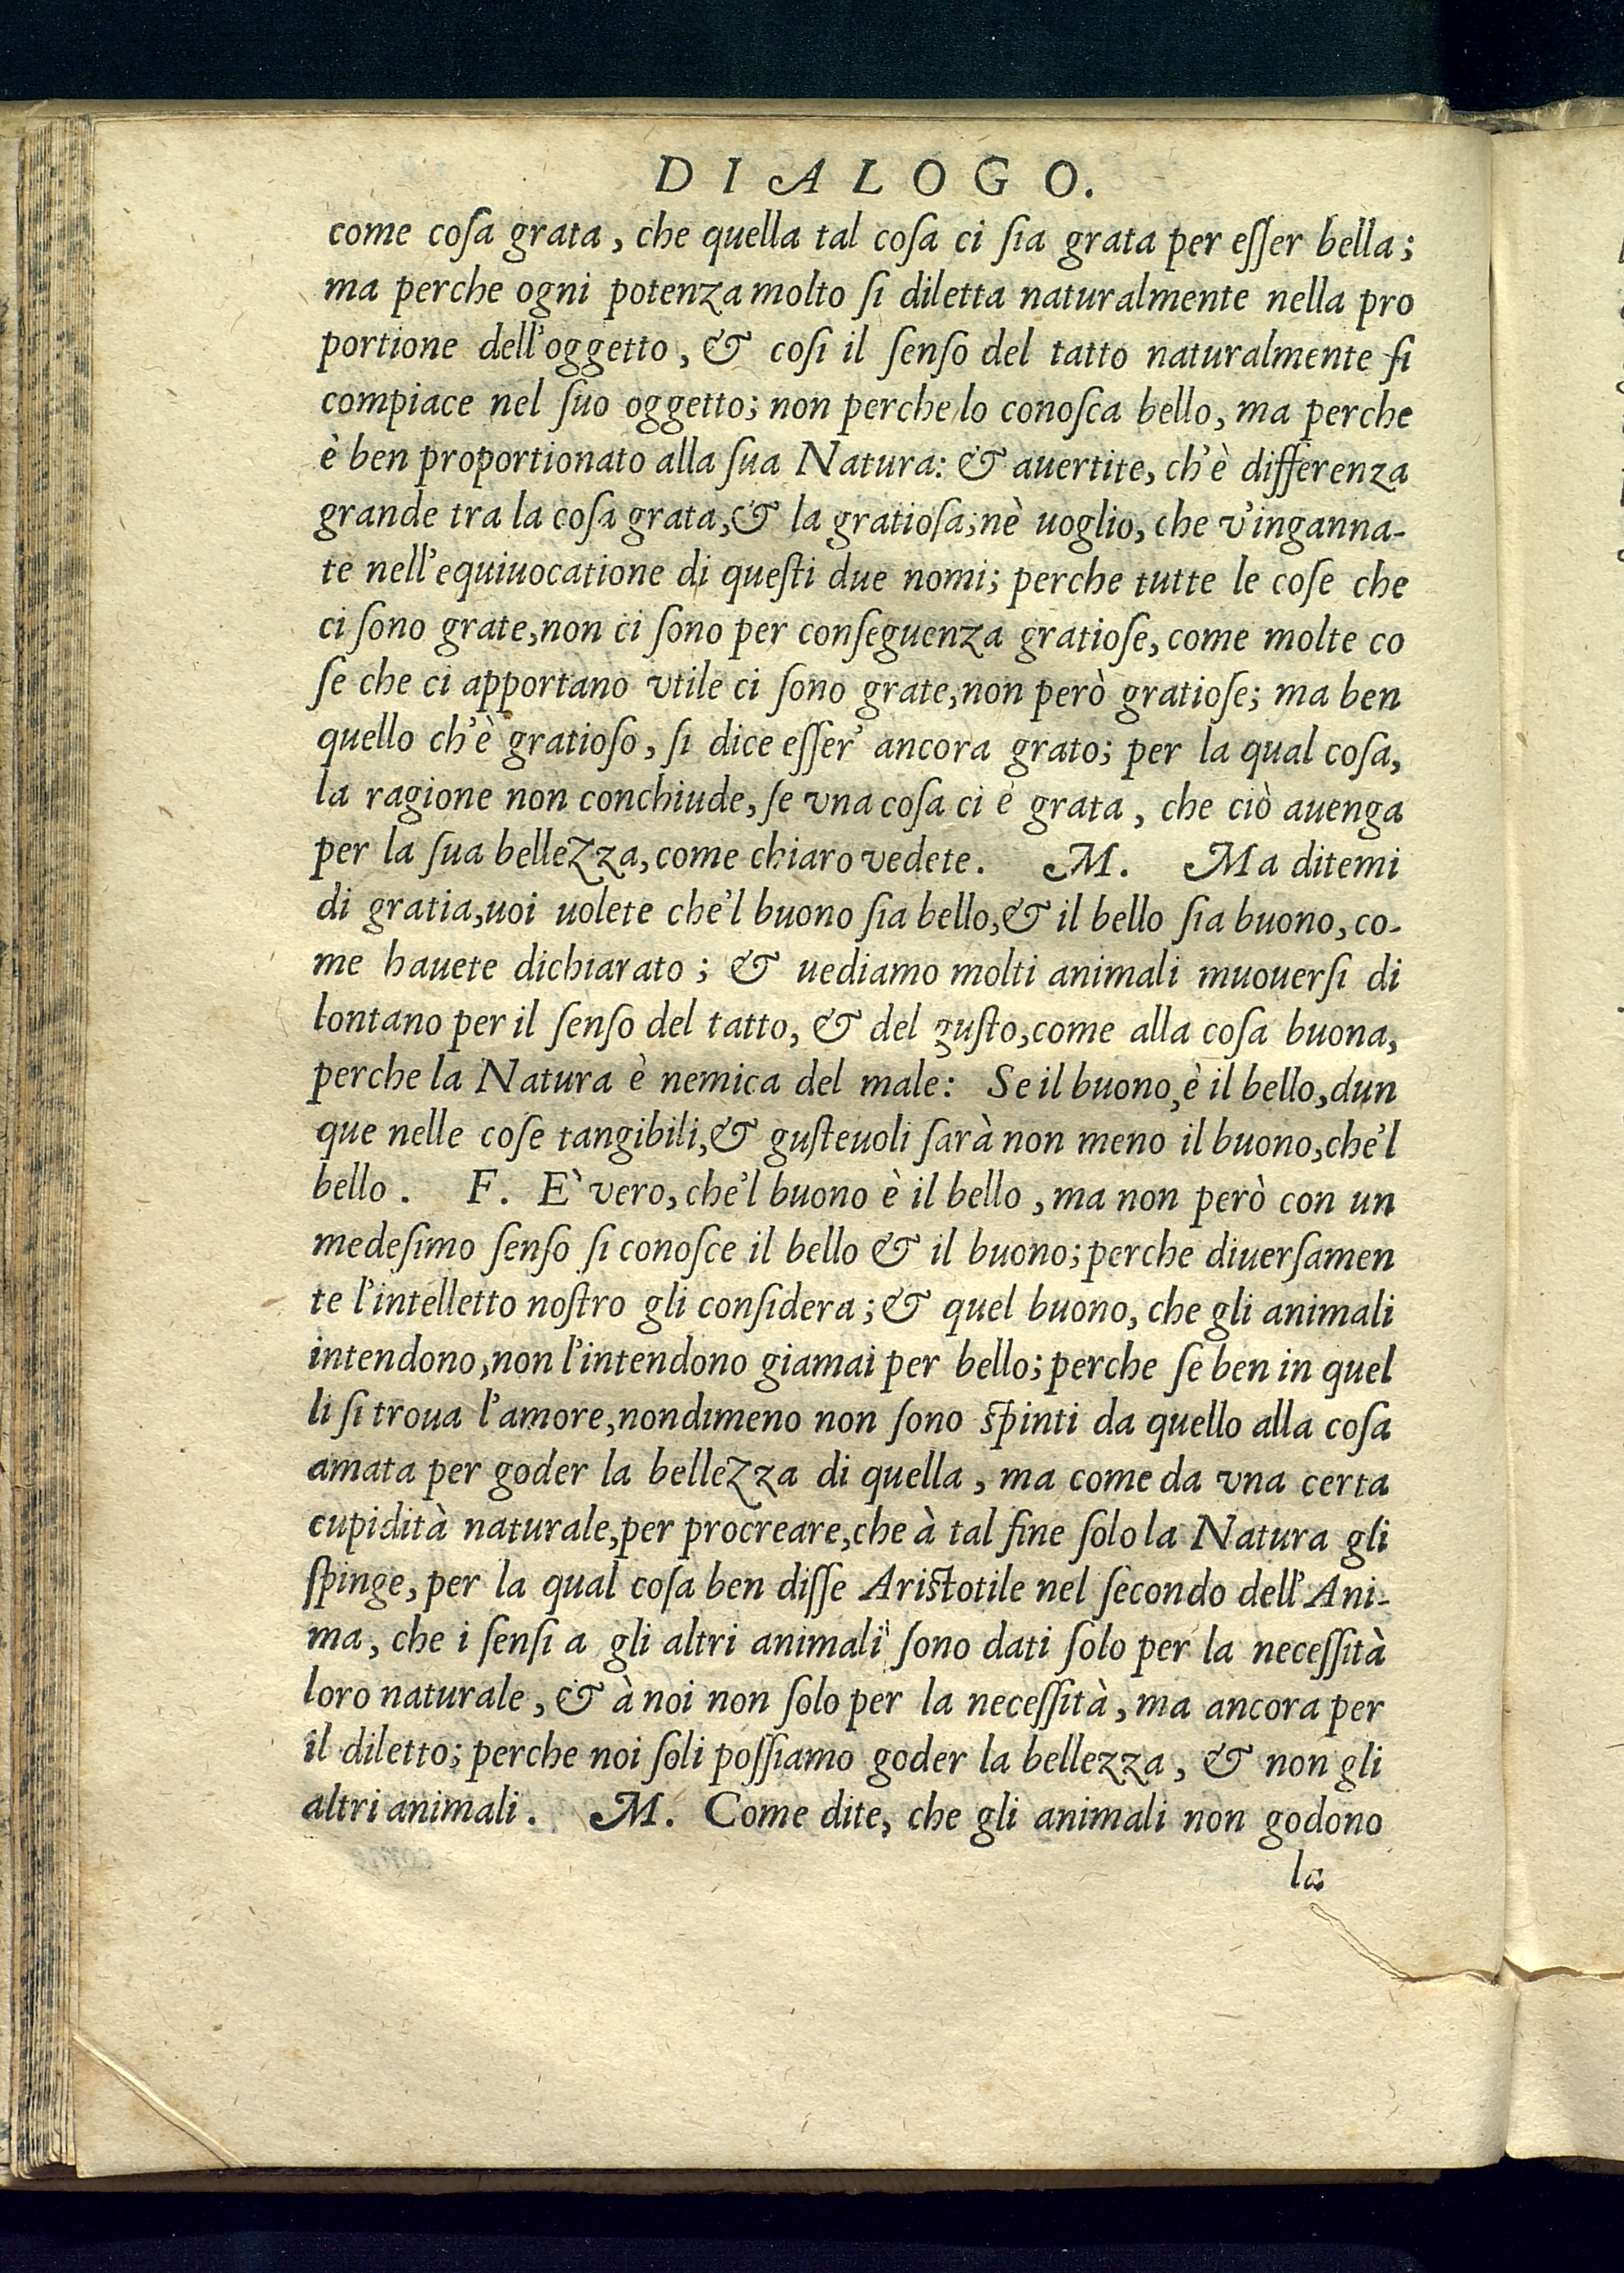 DIALOGO.
come coſa grata, che quella tal coſa ci ſia grata per eſſer bella;
ma perche ogni potenza molto ſi diletta naturalmente nella pro
portione dell'oggetto, & coſi il ſenſo del tatto naturalmente ſi
compiace nel ſuo oggetto; non perche lo conoſca bello, ma perche
è ben proportionato alla ſua Natura: & auertite, ch'è differenza
grande tra la coſa grata, & la gratioſa; nè uoglio, che v'inganna-
te nell'equiuocatione di queſti due nomi; perche tutte le coſe che
ci ſono grate, non ci ſono per conſeguenza gratioſe, come molte co
ſe che ci apportano vtile ci ſono grate, non però gratioſe; ma ben
quello ch'è gratioſo, ſi dice eſſer' ancora grato; per la qual coſa,
la ragione non conchiude, ſe vna coſa ci è grata, che ciò auenga
per la ſua bellezza, come chiaro vedete. M. Ma ditemi
di gratia, uoi uolete che'l buono ſia bello, & il bello ſia buono, co-
me hauete dichiarato; & uediamo molti animali muouerſi di
lontano per il ſenſo del tatto, & del guſto, come alla coſa buona,
perche la Natura è nemica del male: Se il buono, è il bello, dun
que nelle coſe tangibili, & guſteuoli ſarà non meno il buono, che'l
bello. F. E` vero, che'l buono è il bello, ma non però con un
medeſimo ſenſo ſi conoſce il bello & il buono; perche diuerſamen
te l'intelletto noſtro gli conſidera; & quel buono, che gli animali
intendono, non l'intendono giamai per bello; perche ſe ben in quel
li ſi troua l'amore, nondimeno non ſono spinti da quello alla coſa
amata per goder la bellezza di quella, ma come da vna certa
cupidità naturale, per procreare, che à tal fine ſolo la Natura gli
ſpinge, per la qual coſa ben diſſe Ariſtotile nel ſecondo dell'Ani-
ma, che i ſenſi a gli altri animali ſono dati ſolo per la neceſſità
loro naturale, & à noi non ſolo per la neceſſità, ma ancora per
il diletto; perche noi ſoli poſſiamo goder la bellezza, & non gli
altri animali. M. Come dite, che gli animali non godono
la